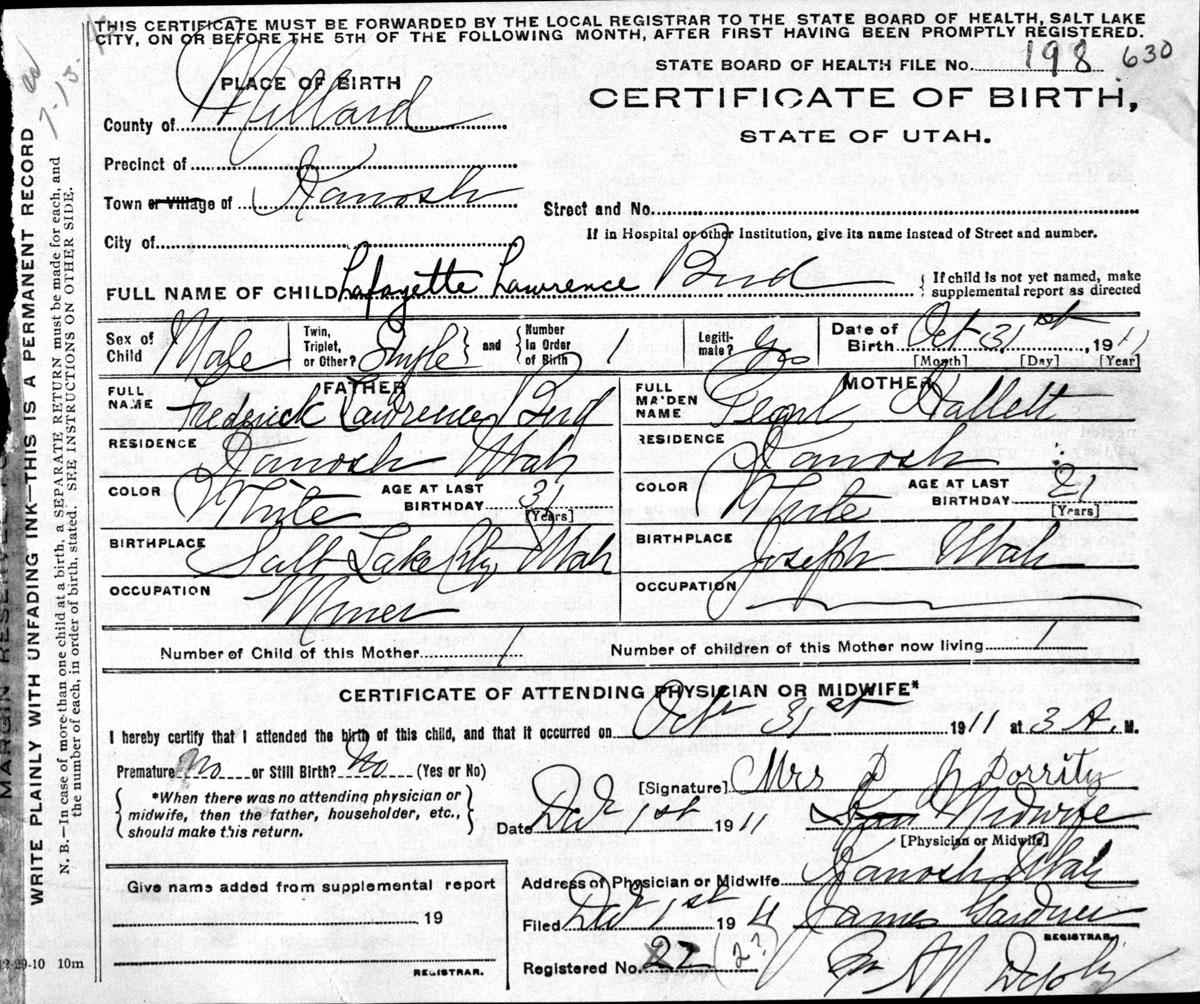 THIS CERTIFICATE MUST BE FORWARDED BY THE LOCAL REGISTRAR TO THE STATE BOARD OF HEALTH, SALT LAKE
CITY, ON OR BEFORE THE 5TH OF THE FOLLOWING MONTH, AFTER FIRST HAVING BEEN PROMPTLY REGISTERED.
STATE BOARD OF HEALTH FILE No. 198 630
PLACE OF BIRTH
CERTIFICATE OF BIRTH,
STATE OF UTAH.
County of Millard
Precinct of
Town or Village of Kanosh
Street and No.
City of
If in Hospital or other Institution, give its name instead of Street and number.
FULL NAME OF CHILD Lafayette Lawrence Bird { If child is not yet named, make
supplemental report as directed
Sex of Child Male Twin, Triplet, or Other? Single } and { Number In Order of Birth 1 Legiti-mate? Yes Date of Birth Oct 31st, 1911
[Month] [Day] [Year]
FATHER MOTHER
FULL NAME Frederick Lawrence Bird FULL MAIDEN NAME Pearl Hallett
RESIDENCE Kanosh Utah RESIDENCE Kanosh
COLOR White AGE AT LAST BIRTHDAY 31 [Years] COLOR White AGE AT LAST BIRTHDAY 21 [Years]
BIRTHPLACE Salt Lake City Utah BIRTHPLACE Joseph Utah
OCCUPATION Miner OCCUPATION
Number of Child of this Mother 1 Number of children of this Mother now living 1
CERTIFICATE OF ATTENDING PHYSICIAN OR MIDWIFE*
I hereby certify that I attended the birth of this child, and that it occurred on Oct 31st 1911 at 3 A. M.
Premature No or Still Birth? No (Yes or No)
[Signature] Mrs
{ *When there was no attending physician or
midwife, then the father, householder, etc.,
should make this return. }
Date Dec 1st 1911 Midwife
[Physician or Midwife]
Address of Physician or Midwife Kanosh Utah
Give name added from supplemental report
19
REGISTRAR.
Filed Dec 1st 1911 James Gardner
REGISTRAR.
Registered No. 22 (2?)
12-29-10 10m
MARGIN RESERVE
WRITE PLAINLY WITH UNFADING INK—THIS IS A PERMANENT RECORD
N. B.—In case of more than one child at a birth, a SEPARATE RETURN must be made for each, and
the number of each, in order of birth, stated. SEE INSTRUCTIONS ON OTHER SIDE.